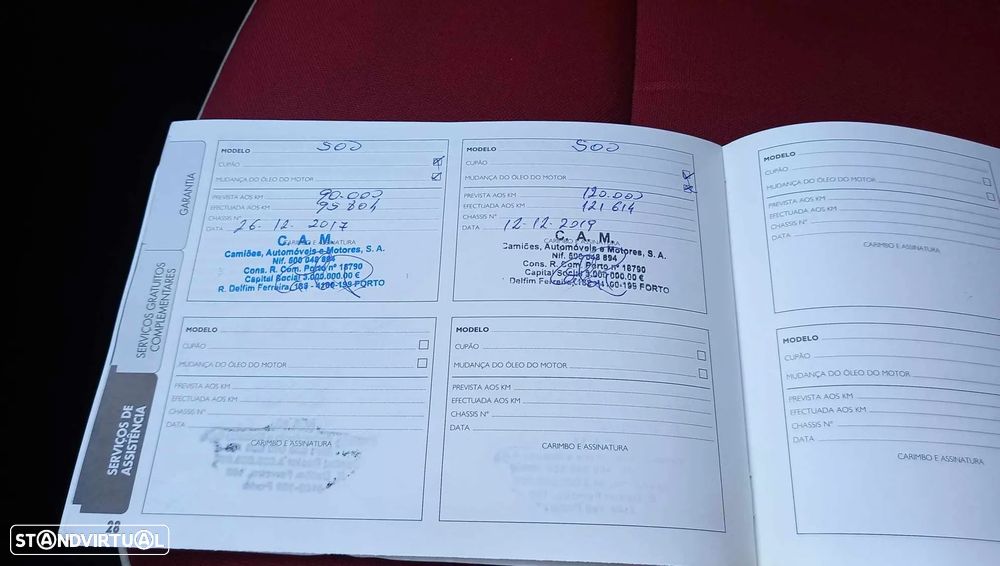 GARANTIA
SERVIÇOS GRATUITOS
COMPLEMENTARES
SERVIÇOS DE
ASSISTÊNCIA
28
MODELO 500
CUPÃO
MUDANÇA DO ÓLEO DO MOTOR
PREVISTA AOS KM 90.000
EFECTUADA AOS KM 95 804
CHASSIS Nº
DATA 26.12.2017
CARIMBO E ASSINATURA
C. A. M.
Camiões, Automóveis e Motores, S. A.
Nif. 500 048 894
Cons. R. Com. Porto nº 18790
Capital Social 3.000.000.00 €
R. Delfim Ferreira, 183 - 4100-199 PORTO
MODELO 500
CUPÃO
MUDANÇA DO ÓLEO DO MOTOR
PREVISTA AOS KM 120.000
EFECTUADA AOS KM 121 614
CHASSIS Nº
DATA 12-12-2019
CARIMBO E ASSINATURA
C. A. M.
Camiões, Automóveis e Motores, S. A.
Nif. 500 048 894
Cons. R. Com. Porto nº 18790
Capital Social 3.000.000.00 €
Delfim Ferreira, 183 - 4100-199 PORTO
MODELO
CUPÃO
MUDANÇA DO ÓLEO DO MOTOR
PREVISTA AOS KM
EFECTUADA AOS KM
CHASSIS Nº
DATA
CARIMBO E ASSINATURA
MODELO
CUPÃO
MUDANÇA DO ÓLEO DO MOTOR
PREVISTA AOS KM
EFECTUADA AOS KM
CHASSIS Nº
DATA
CARIMBO E ASSINATURA
MODELO
CUPÃO
MUDANÇA DO ÓLEO DO MOTOR
PREVISTA AOS KM
EFECTUADA AOS KM
CHASSIS Nº
DATA
CARIMBO E ASSINATURA
MODELO
CUPÃO
MUDANÇA DO ÓLEO DO MOTOR
PREVISTA AOS KM
EFECTUADA AOS KM
CHASSIS Nº
DATA
CARIMBO E ASSINATURA
STANDVIRTUAL